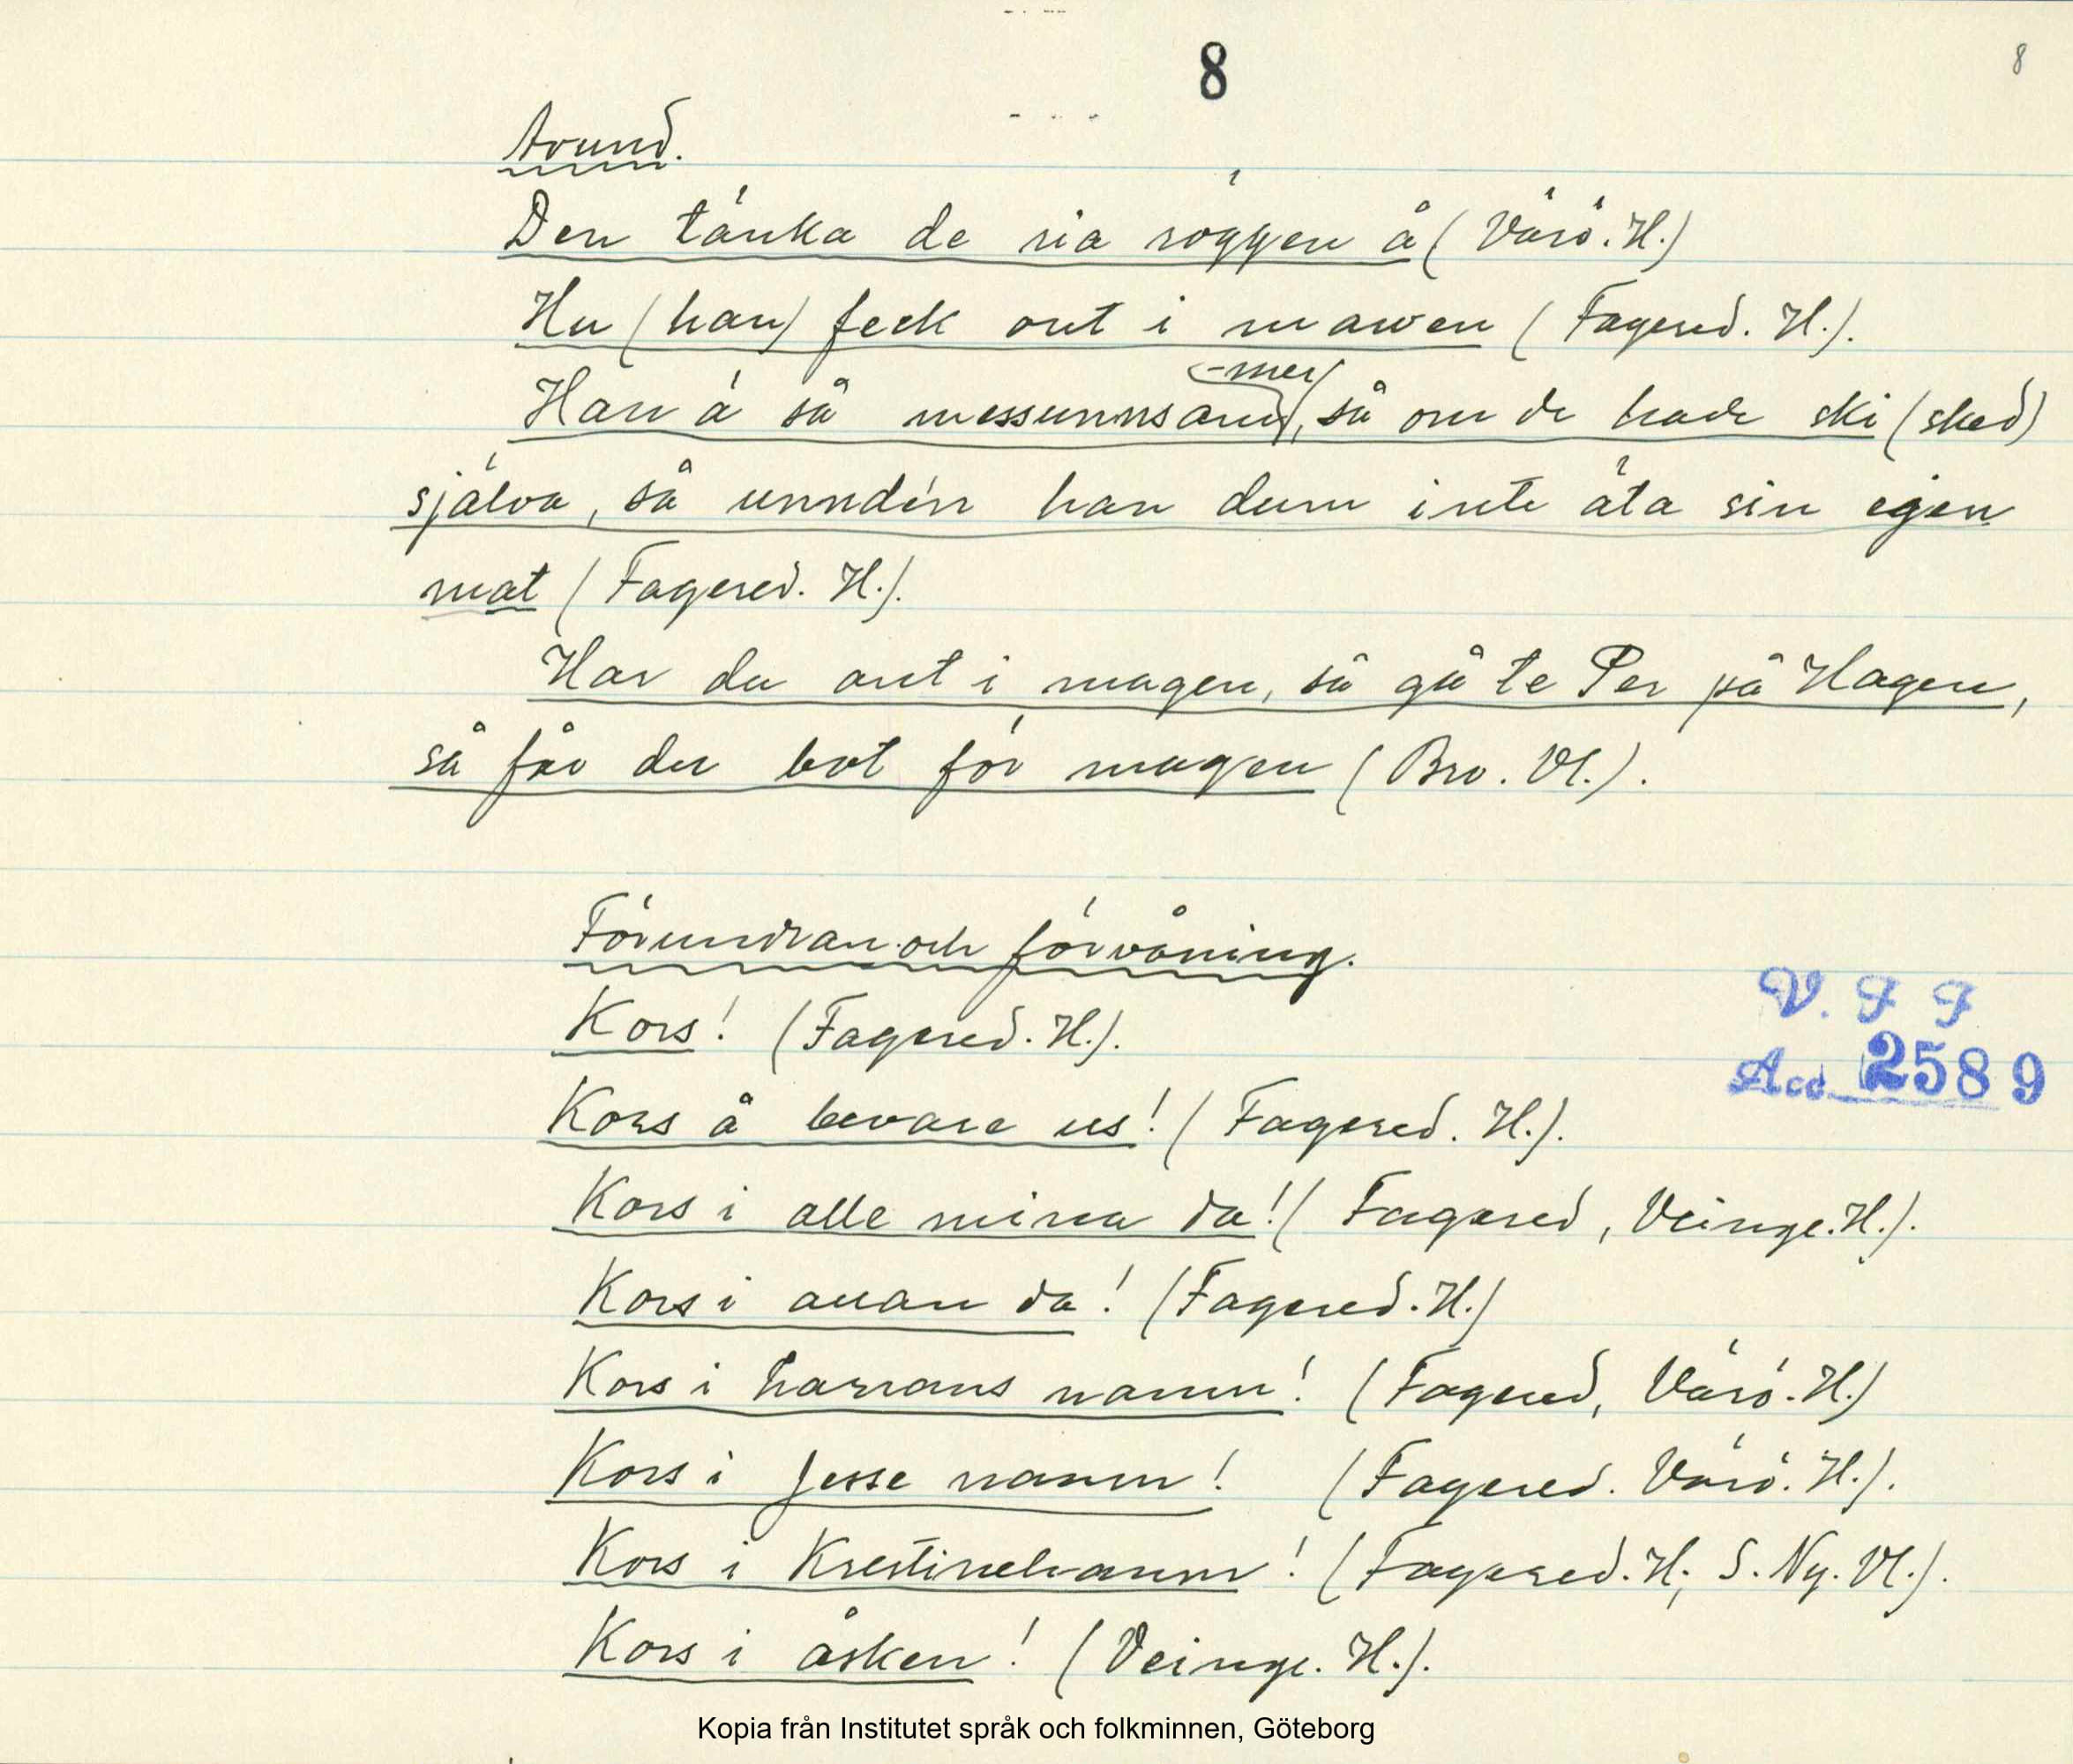 8
8
Avund.
Den tänka de ria röggen å (Värö. H.)
Hu (han) feck ont i mawen (Fagered. H.).
-mer
Han ä så messunnsam, så om de hade ski (sked)
själva, så unndén han dum inte äta sin egen
mat (Fagered. H.).
Har du ont i magen, så gå te Per på Hagen,
så får du bot för magen (Bro. Vl.).
Förundran och förvåning.
Kors! (Fagered. H.).
V. F F
Acc. 2589
Kors å bevare us! (Fagered. H.).
Kors i alle mina da! (Fagered, Veinge. H.).
Kors i annan da! (Fagered. H.)
Kors i harrans namn! (Fagered, Värö. H.)
Kors i Jesse namn! (Fagered. Värö. H.).
Kors i Krestinehamn! (Fagered. H; S. Ny. Vl.).
Kors i åsken! (Veinge. H.).
Kopia från Institutet språk och folkminnen, Göteborg